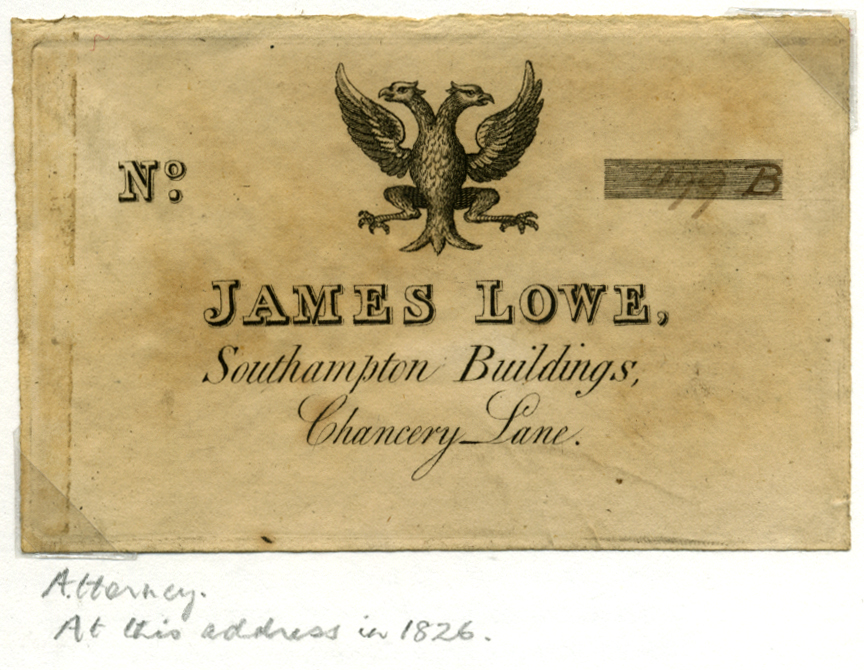 Nº. 499 B
JAMES LOWE,
Southampton Buildings,
Chancery Lane.
Attorney.
At this address in 1826.